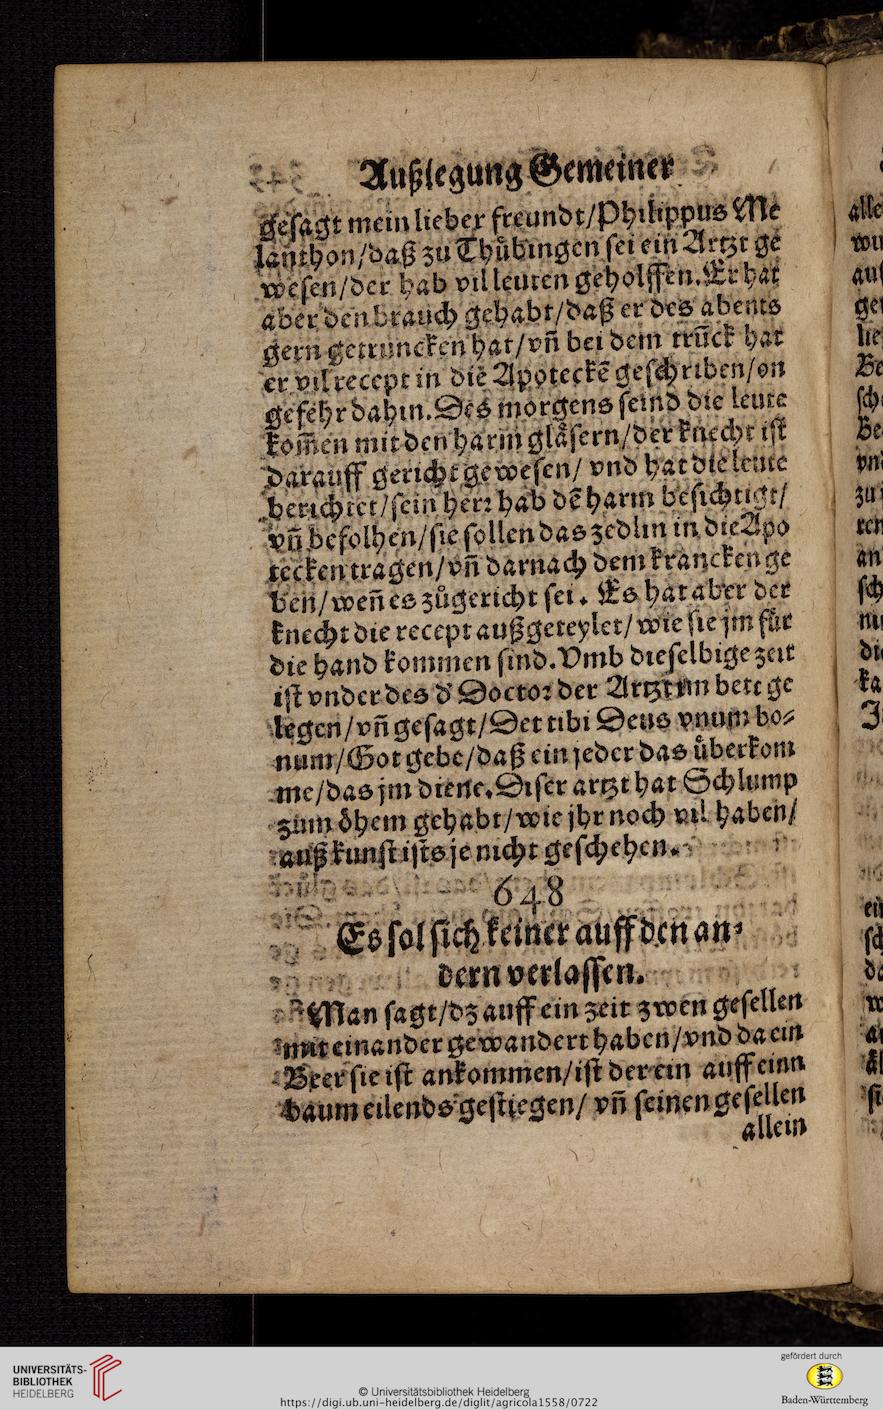 Außlegung Gemeiner
gesagt mein lieber freundt/Philippus Me
lanthon/daß zu Thůbingen sei ein Artzt ge
wesen/der hab vil leuten geholffen. Er hat
aber den brauch gehabt/daß er des abents
gern getruncken hat/vñ bei dem trũck hat
er vil recept in die Apoteckẽ geschriben/on
gefehr dahin. Des morgens seind die leute
kom̃en mit den harm gläsern/der knecht ist
darauff gericht gewesen/ vnd hat die leute
berichtet/sein herr hab dẽ harm besichtigt/
vñ befolhen/sie sollen das zedlin in die Apo
tecken tragen/vñ darnach dem krancken ge
ben/weñ es zůgericht sei. Es hat aber der
knecht die recept außgeteylet/wie sie jm für
die hand kommen sind. Vmb dieselbige zeit
ist vnder des d' Doctor der Artzt im bett ge
legen/vñ gesagt/Det tibi Deus vnum bo⸗
num/Got gebe/daß ein jeder das überkom
me/das jm diene. Diser artzt hat Schlump
zum öhem gehabt/wie jhr noch vil haben/
auß kunst ists je nicht geschehen.
648
Es sol sich keiner auff den an⸗
dern verlassen.
Man sagt/dz auff ein zeit zwen gesellen
mit einander gewandert haben/vnd da ein
Beer sie ist ankommen/ist der ein auff einn
baum eilends gestiegen/ vñ seinen gesellen
allein
alle
wu
auß
lie
Be
sch
Be
zu
an
sch
di
ka
UNIVERSITÄTS-
BIBLIOTHEK
HEIDELBERG
© Universitätsbibliothek Heidelberg
https://digi.ub.uni-heidelberg.de/diglit/agricola1558/0722
gefördert durch
Baden-Württemberg